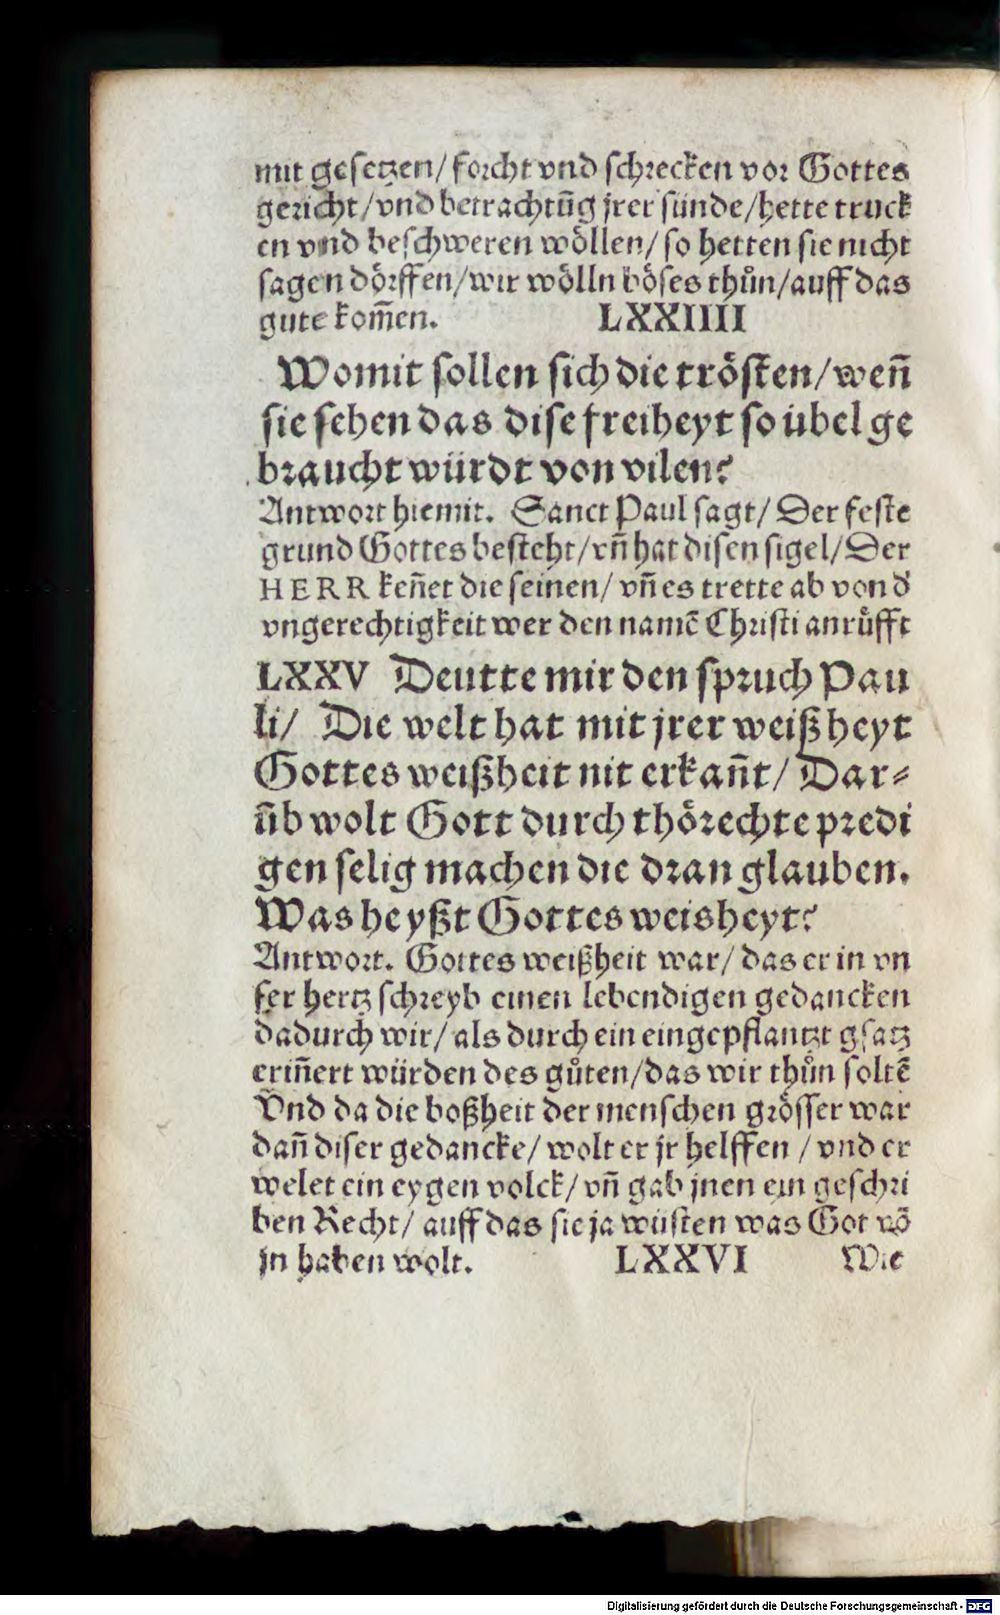 mit gesetzen/ forcht vnd schrecken vor Gottes
gericht/ vnd betrachtūg jrer sünde/ hette truck
en vnd beschweren wöllen/ so hetten sie nicht
sagen dörffen/ wir wölln böses thůn/ auff das
gute kom̄en. LXXIIII
Womit sollen sich die trösten/ wen̄
sie sehen das dise freiheyt so übel ge
braucht würdt von vilen?
Antwort hiemit. Sanct Paul sagt/ Der feste
grund Gottes besteht/ vn̄ hat disen sigel/ Der
HERR ken̄et die seinen/ vn̄ es trette ab von d'
vngerechtigkeit wer den namē Christi anrüfft
LXXV Deutte mir den spruch Pau
li/ Die welt hat mit jrer weißheyt
Gottes weißheit nit erkan̄t/ Dar⸗
ūb wolt Gott durch thörechte predi
gen selig machen die dran glauben.
Was heyßt Gottes weisheyt?
Antwort. Gottes weißheit war/ das er in vn
ser hertz schreyb einen lebendigen gedancken
dadurch wir/ als durch ein eingepflantzt gsatz
erin̄ert würden des gůten/ das wir thůn soltē
Vnd da die boßheit der menschen grösser war
dan̄ diser gedancke/ wolt er jr helffen / vnd er
welet ein eygen volck/ vn̄ gab jnen ein geschri
ben Recht/ auff das sie ja wüsten was Got vō
jn haben wolt. LXXVI Wie
Digitalisierung gefördert durch die Deutsche Forschungsgemeinschaft - DFG